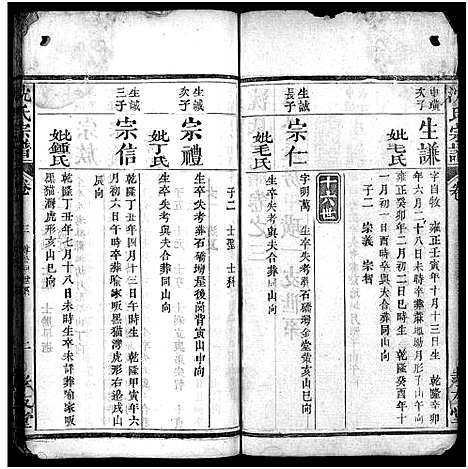 沈氏宗譜
次子
生謙
字自牧 雍正壬寅年十月十三日生 乾隆辛卯
年六月二十八日未時卒葬蔴地塲月形子山午向
妣毛氏
雍正癸卯年二月初二日巳時生 乾隆癸酉年十
一月初一日酉時卒與夫合葬同山向
子二 宗義 宗智
十六世
生誠
長子
宗仁
字明萬 生卒失考葬石磡塝金堂黄亥山巳向
妣毛氏
生卒失考與夫合葬同山向
生誠
次子
宗禮
生卒失考葬石磡塝屋後崗背寅山申向
妣丁氏
生卒失考與夫合葬同山向
子二 士
生誠
三子
宗信
乾隆丁丑年四月十三日午時生 乾隆甲寅年六
月初六日午時卒葬喻家畈黑猫灣虎形右邊戌山
辰向
妣鍾氏
乾隆丁丑年七月十八日未時生卒未詳葬喻家畈
黑猫灣虎形右山向
沈氏宗譜
卷